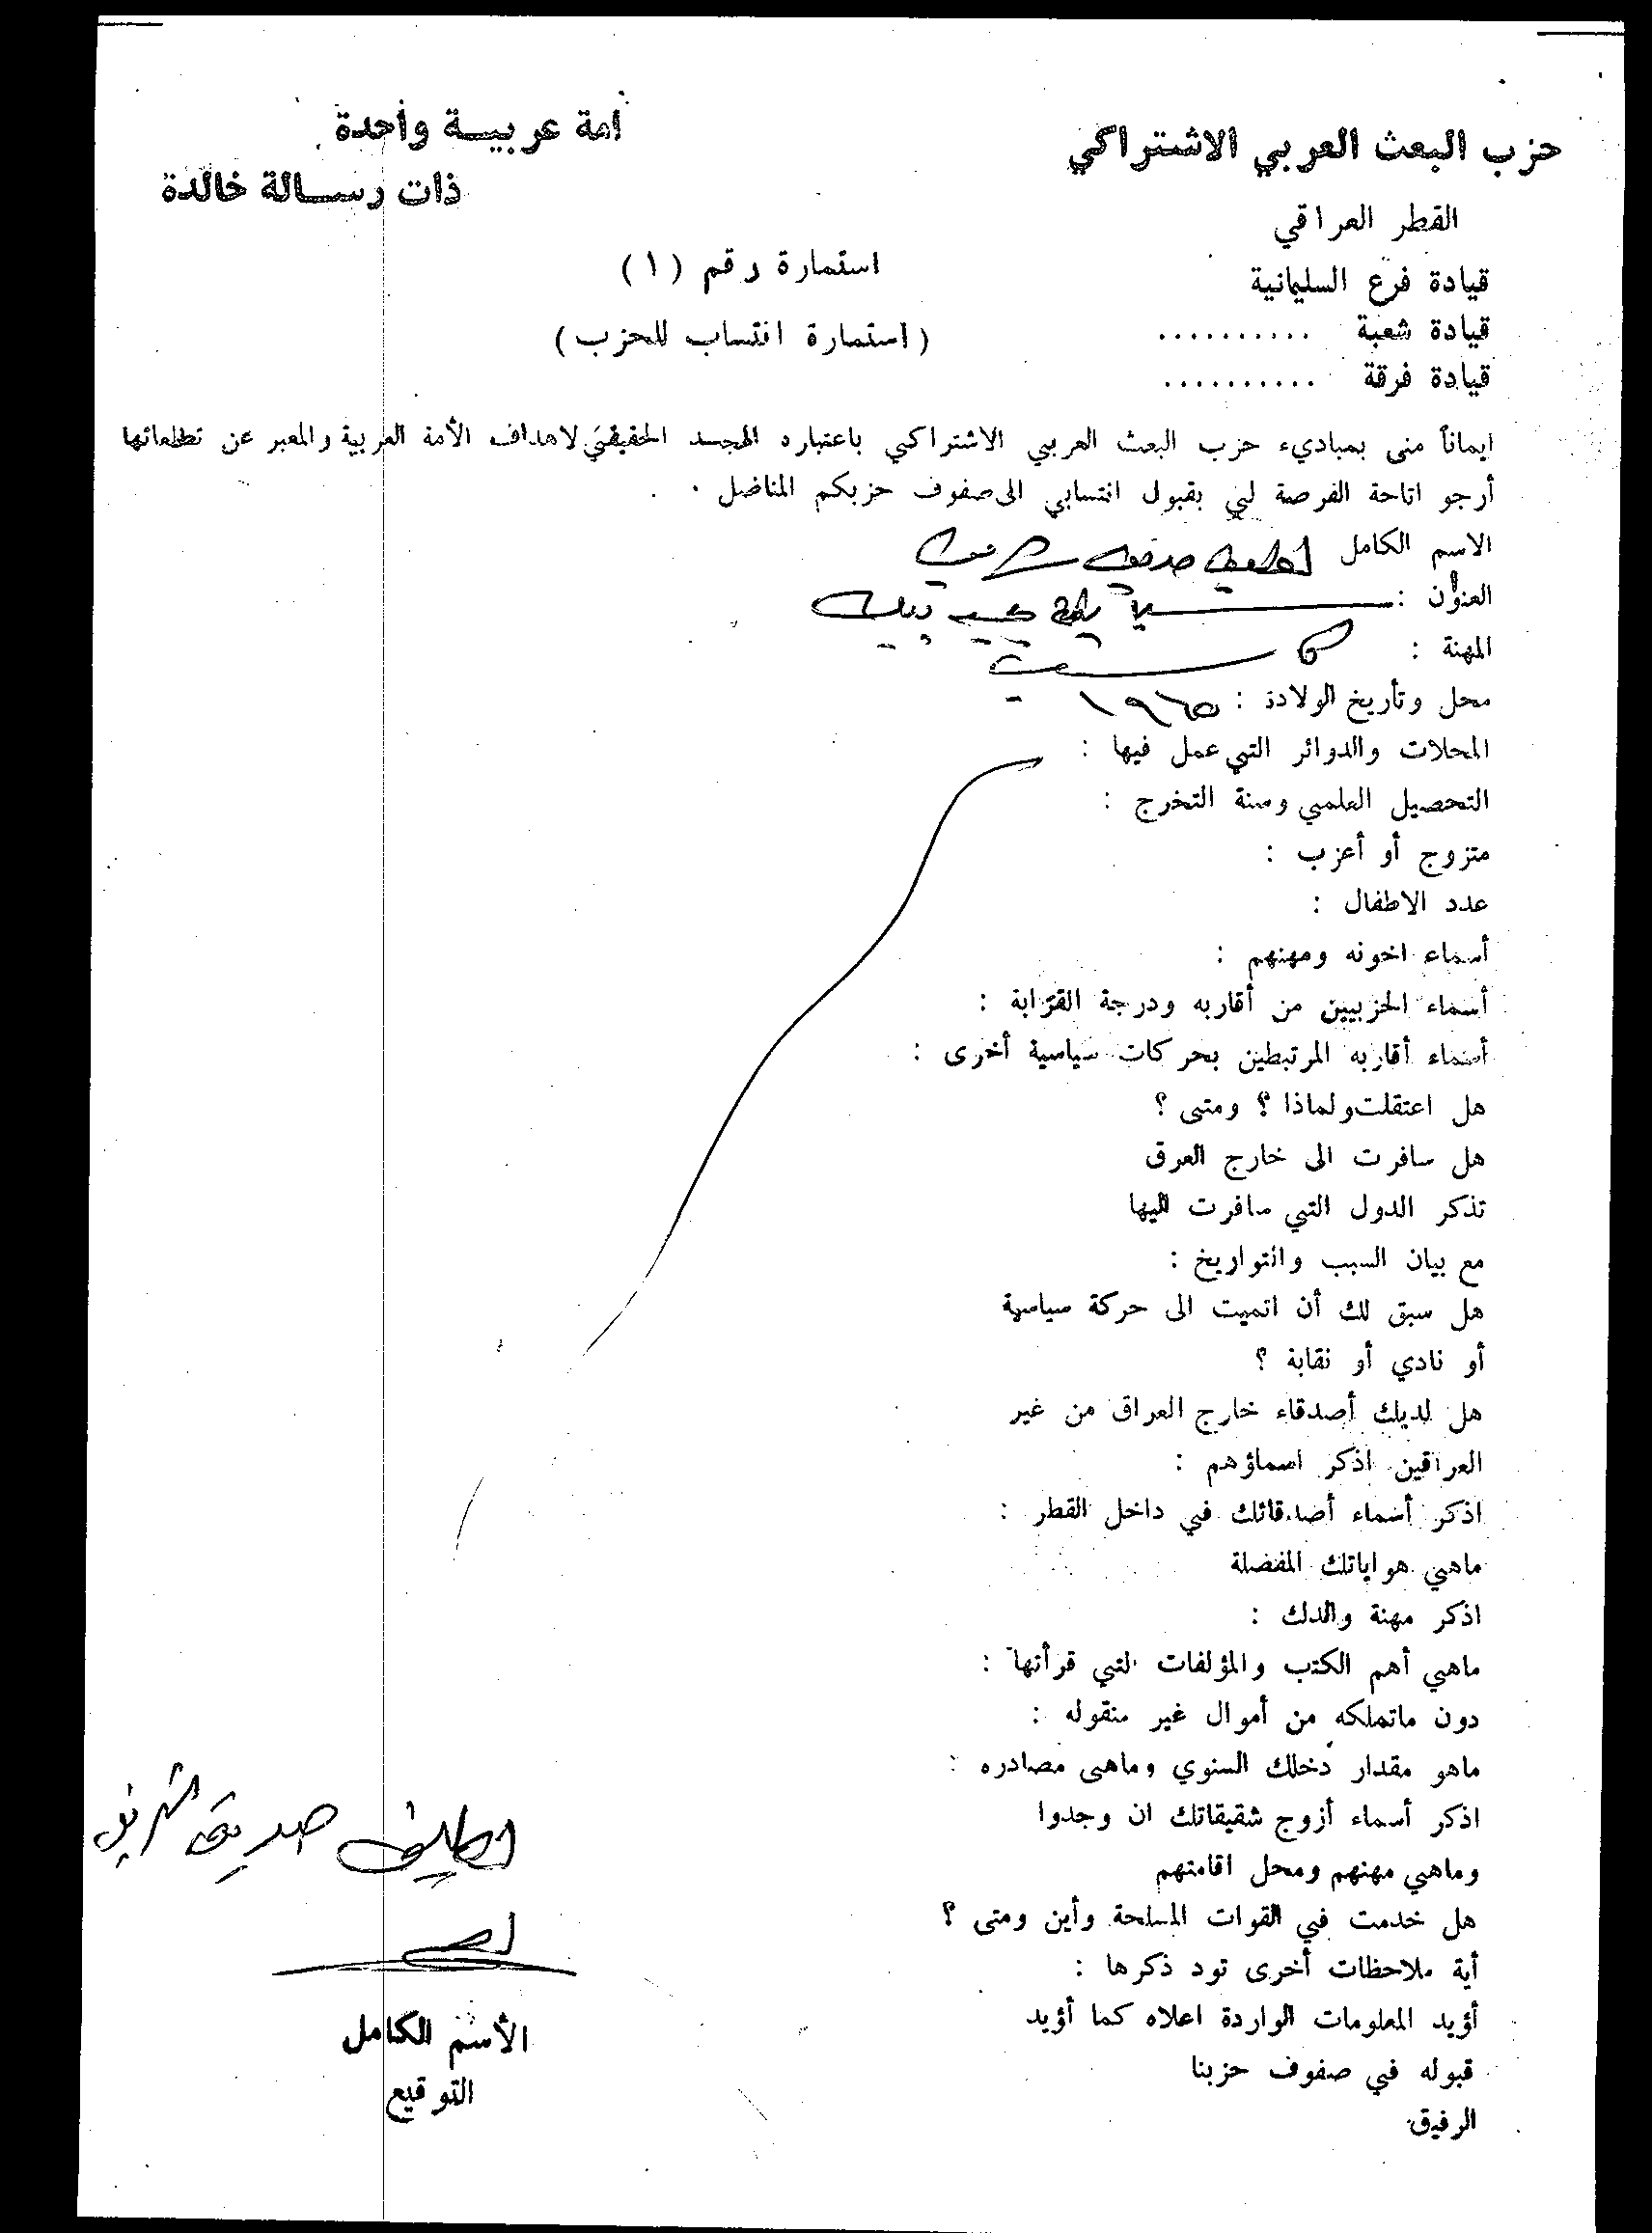 حزب البعث العربي الاشتراكي
امة عربيـــة واحدة
ذات رســـالة خالدة
القطر العراقي
قيادة فرع السليمانية
قيادة شعبة ..........
قيادة فرقة ..........
استمارة رقم (١)
(استمارة انتساب للحزب)
ايماناً منى بمباديء حزب البعث العربي الاشتراكي باعتباره المجسد الحقيقي لاهداف الأمة العربية والمعبر عن تطلعاتها
أرجو اتاحة الفرصة لي بقبول انتسابي الى صفوف حزبكم المناضل .
الاسم الكامل لطيف صديق شريف
العنوان :
المهنة : كاسب
محل وتأريخ الولادة : ١٩٦٥
المحلات والدوائر التي عمل فيها :
التحصيل العلمي وسنة التخرج :
متزوج أو أعزب :
عدد الاطفال :
أسماء اخونه ومهنهم :
أسماء الحزبيين من أقاربه ودرجة القرابة :
أسماء أقاربه المرتبطين بحركات سياسية أخرى :
هل اعتقلت ولماذا ؟ ومتى ؟
هل سافرت الى خارج العرق
تذكر الدول التي سافرت اليها
مع بيان السبب والتواريخ :
هل سبق لك أن اتميت الى حركة سياسية
أو نادي أو نقابة ؟
هل لديك أصدقاء خارج العراق من غير
العراقين اذكر اسماؤهم :
اذكر أسماء أصدقائك في داخل القطر :
ماهي هواياتك المفضلة
اذكر مهنة والدك :
ماهي أهم الكتب والمؤلفات التي قرأتها :
دون ماتملكه من أموال غير منقوله :
ماهو مقدار دخلك السنوي وماهى مصادره :
اذكر أسماء أزوج شقيقاتك ان وجدوا
وماهي مهنهم ومحل اقامتهم
هل خدمت في القوات المسلحة وأين ومتى ؟
أية ملاحظات أخرى تود ذكرها :
أؤيد المعلومات الواردة اعلاه كما أؤيد
قبوله في صفوف حزبنا
الرفيق
لطيف صديق شريف
الأسم الكامل
التوقيع